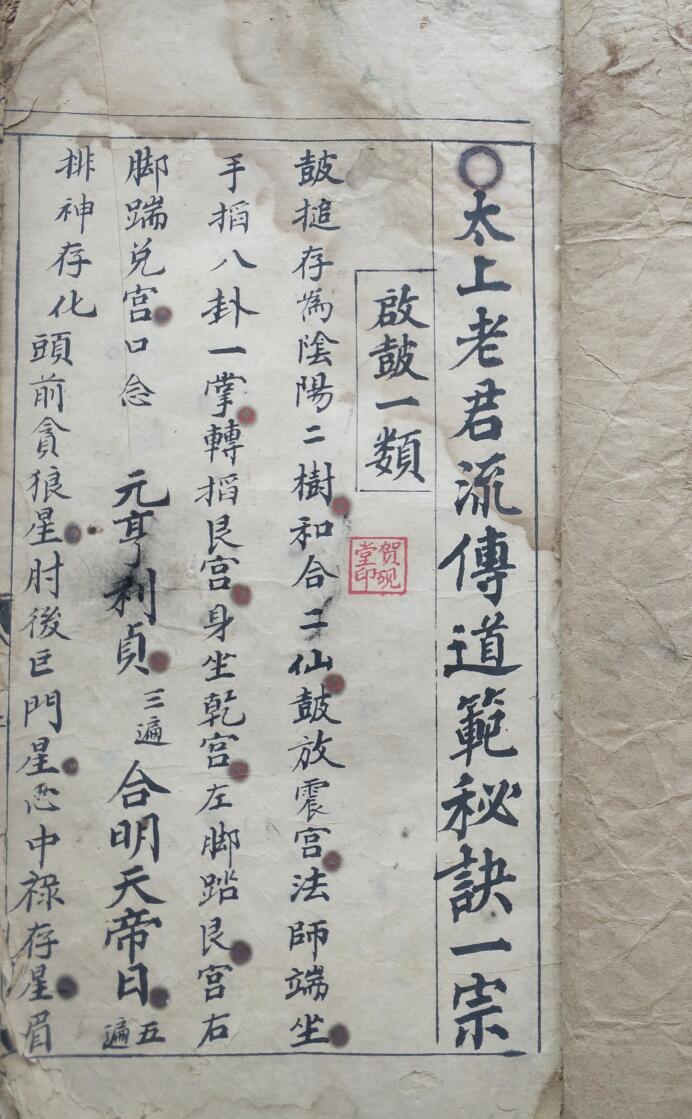 太上老君流傳道範秘訣一宗
啟鼓一類
賀硯堂印
鼓搥存為陰陽二樹和合二仙鼓放震宫法師端坐
手搯八卦一掌轉搯艮宫身坐乾宫左脚踏艮宫右
脚踹兑宫口念 元亨利貞三遍合明天帝日五遍
排神存化頭前貪狼星肘後巨門星 中祿存星眉